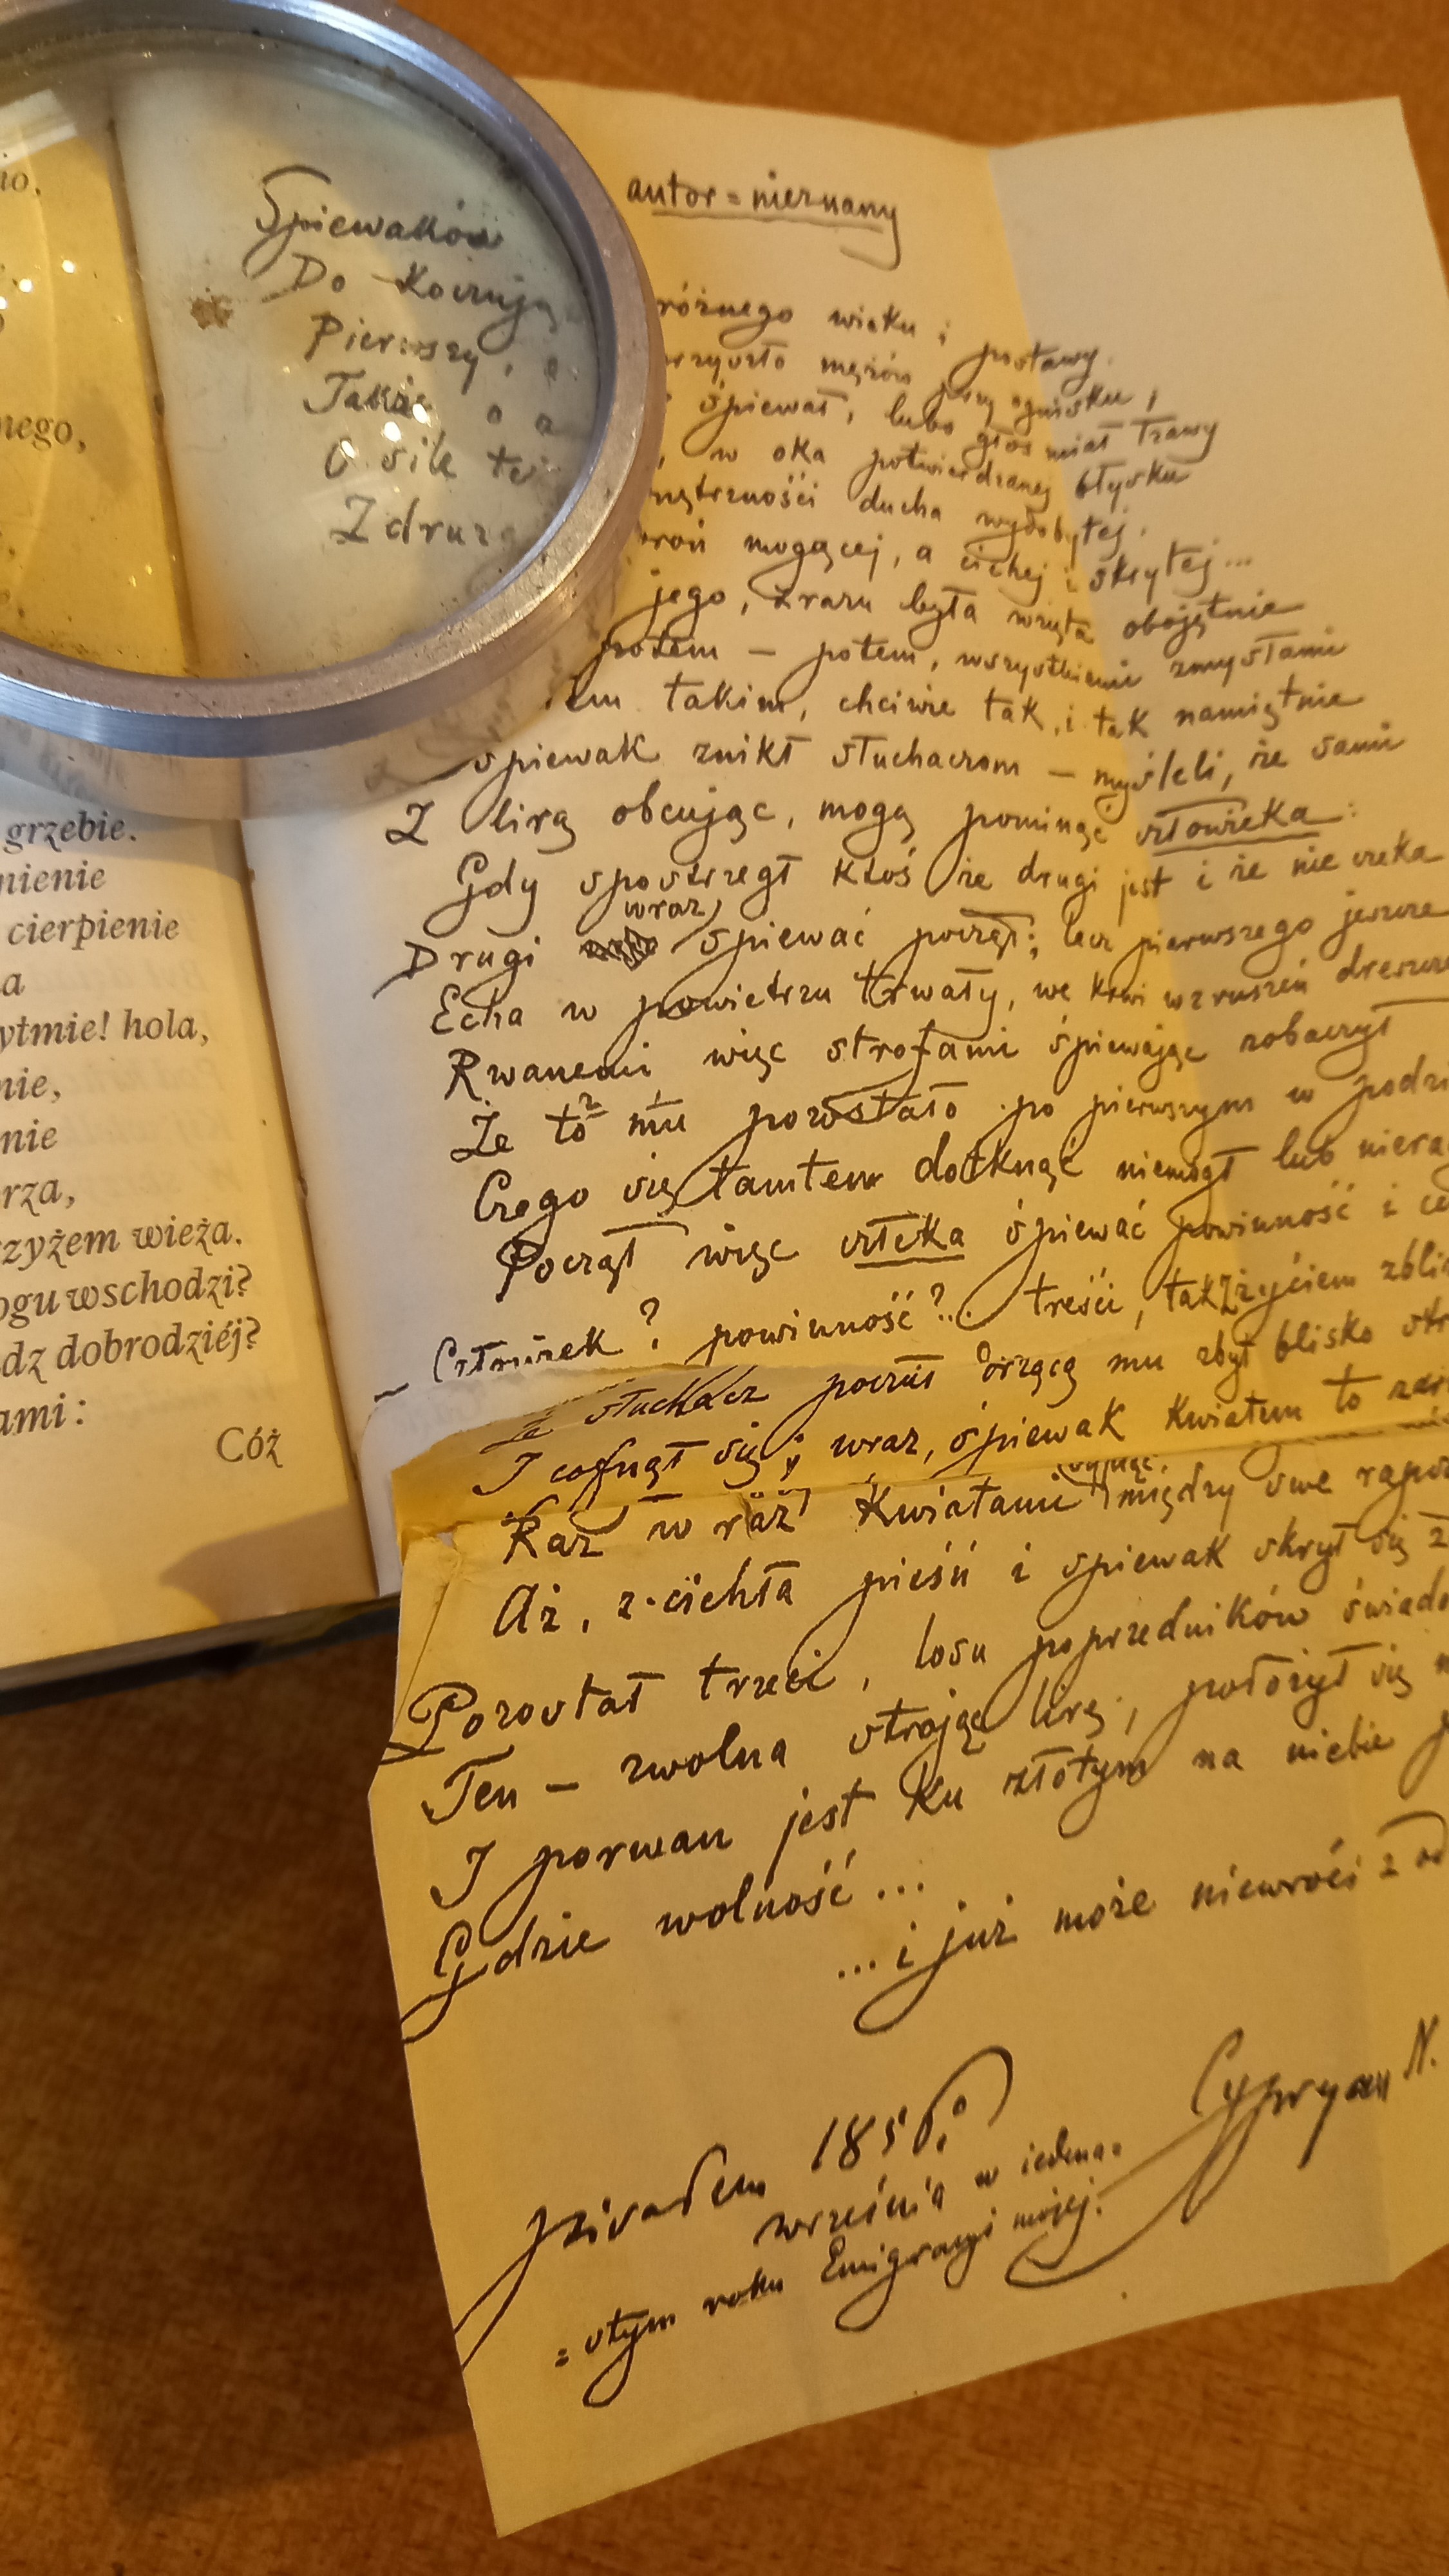 no.
nego,
grzebie.
nienie
cierpienie
a
ytmie! hola,
nie,
nie
rza,
zyżem wieża.
ogu wschodzi?
dz dobrodziéj?
ami:
Cóż
autor = nieznany
Śpiewaków różnego wieku i postawy
Do Koczują przyszło mężów przy ognisku,
Pierwszy, śpiewał, lubo głos miał łzawy
Takiż, o w oka potwierdzanej błysku
O sile tej wnętrzności ducha wydobytej.
Z druzg mogącej, a cichej i skrytej...
jego, zrazu była wzięta obojętnie
potem — potem, wszystkiemi zmysłami
takim, chciwie tak, i tak namiętnie
śpiewak znikł słuchaczom — myśleli, że sami
Z lirą obcując, mogą pominąć człowieka:
Gdy spostrzegł ktoś że drugi jest i że nie czeka
Drugi wraz, śpiewać począł; lecz pierwszego jeszcze
Echa w powietrzu trwały, we krwi wzruszeń dreszcze
Rwanemi więc strofami śpiewając zobaczył
Że to 2 mu 1 powstało po pierwszym w podzi
Czego się tamten dotknąć niemógł lub nieraczy
Począł więc człeka śpiewać powinność i ce
— Człowiek? powinność?... treści, tak z życiem zbli
Że słuchacz poczuł drżącą mu zbyt blisko str
I cofnął się; wraz, śpiewak kwiatem to zar
Raz w raz kwiatami wijąc, między swe rapso
Aż, z-cichła pieśń i śpiewak skrył się z
Pozostał trzeci, losu poprzedników świado
Ten — zwolna strojąc lirę, położył się n
I porwan jest ku złotym na niebie p
Gdzie wolność...
...i już może niewróci z od
pisałem 1856.
września w iedena=
=stym roku Emigracyi mojej.
Cypryan N.